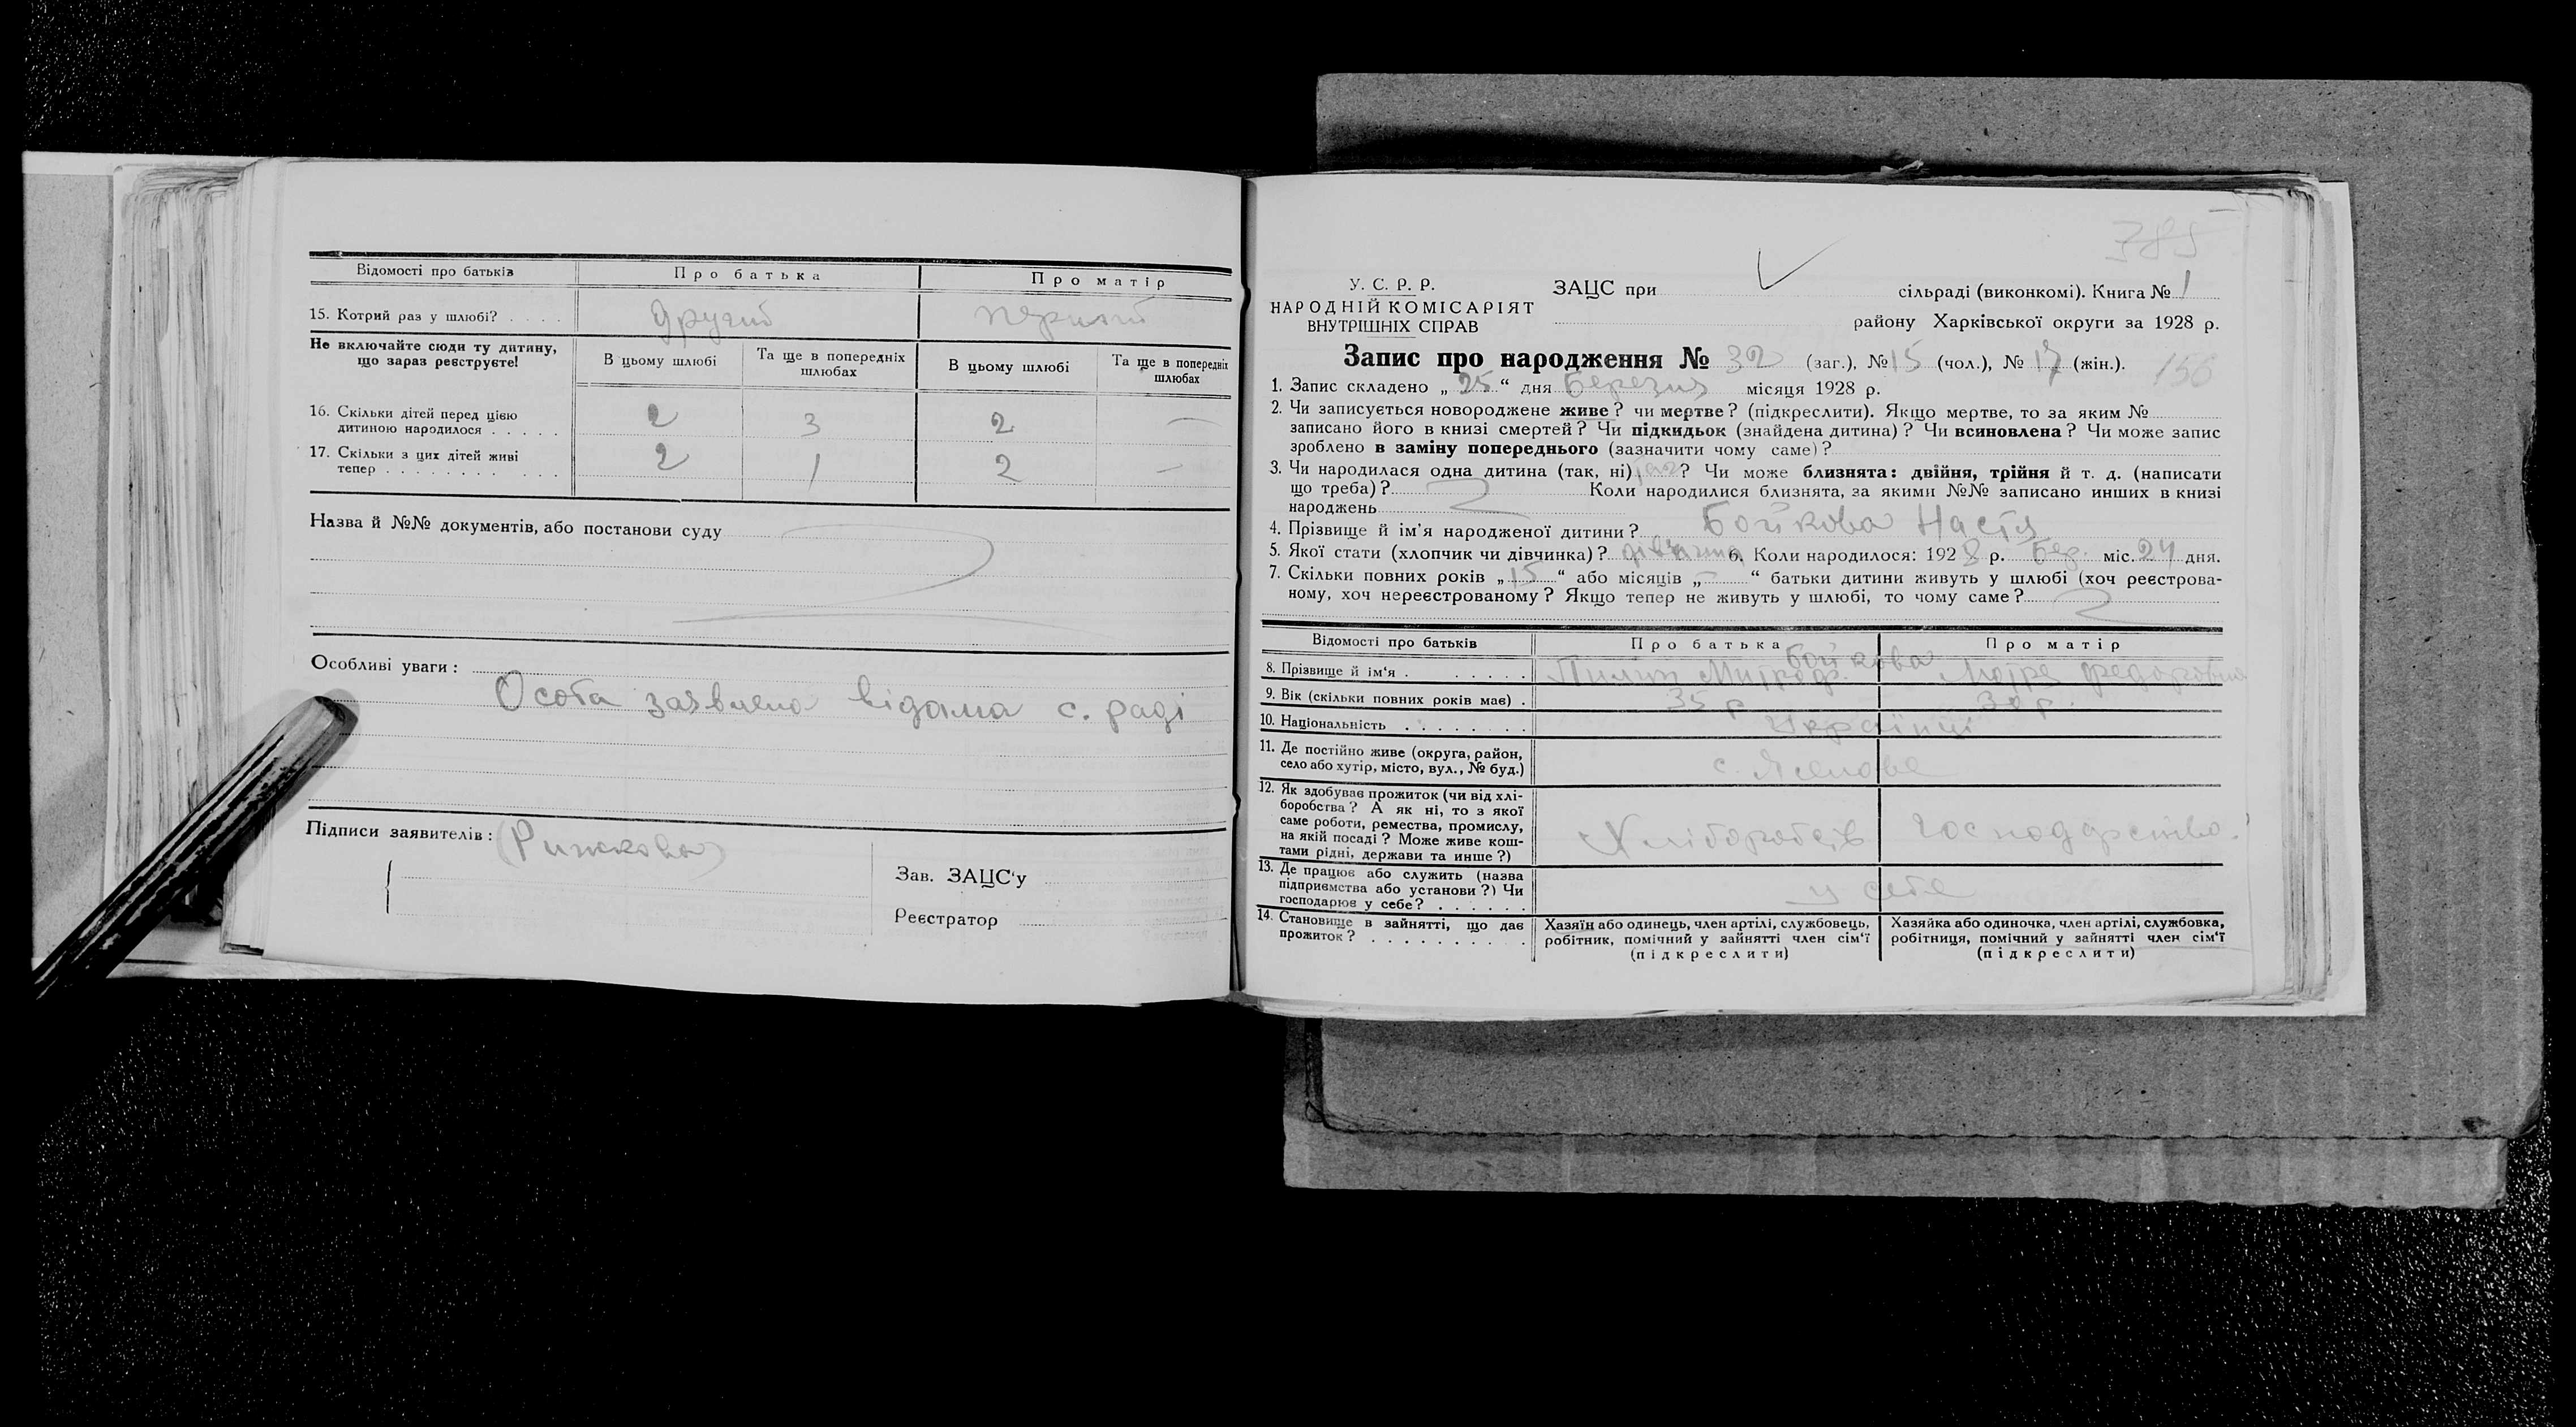 Відомості про батьків
Про батька
Про матір
15. Котрий раз у шлюбі?
другий
перший
Не включайте сюди ту дитину,
що зараз реєструєте!
В цьому шлюбі
Та ще в попередніх
шлюбах
В цьому шлюбі
Та ще в попередніх
шлюбах
16. Скільки дітей перед цією
дитиною народилося
2
3
2
—
17. Скільки з цих дітей живі
тепер
2
1
2
—
Назва й №№ документів, або постанови суду
Особливі уваги:
Особа заявлена відома с. раді
Підписи заявителів: (Рижкова)
Зав. ЗАЦС'у
Реєстратор
785
У. С. Р. Р.
НАРОДНІЙ КОМІСАРІЯТ
ВНУТРІШНІХ СПРАВ
ЗАЦС при сільраді (виконкомі). Книга № 1
району Харківської округи за 1928 р.
Запис про народження № 32 (заг.), № 15 (чол.), № 17 (жін.).
156
1. Запис складено „25“ дня березня місяця 1928 р.
2. Чи записується новороджене живе? чи мертве? (підкреслити). Якщо мертве, то за яким №
записано його в книзі смертей? Чи підкидьок (знайдена дитина)? Чи всиновлена? Чи може запис
зроблено в заміну попереднього (зазначити чому саме)?
3. Чи народилася одна дитина (так, ні) так? Чи може близнята: двійня, трійня й т. д. (написати
що треба)? Коли народилися близнята, за якими №№ записано инших в книзі
народжень
4. Прізвище й ім'я народженої дитини? Бойкова Настя
5. Якої стати (хлопчик чи дівчинка)? дівчина 6. Коли народилося: 1928 р. Бер. міс. 24 дня.
7. Скільки повних років „15“ або місяців „—“ батьки дитини живуть у шлюбі (хоч реєстрова-
ному, хоч нереєстрованому? Якщо тепер не живуть у шлюбі, то чому саме?
Відомості про батьків
Про батька
Про матір
Бойкова
8. Прізвище й ім'я
Пилип Митроф.
Федоровна
9. Вік (скільки повних років має)
35 р
30 р.
10. Національність
Українці
11. Де постійно живе (округа, район,
село або хутір, місто, вул., № буд.)
с.
12. Як здобуває прожиток (чи від хлі-
боробства? А як ні, то з якої
саме роботи, ремества, промислу,
на якій посаді? Може живе кош-
тами рідні, держави та инше?)
господарство.
13. Де працює або служить (назва
підприємства або установи?) Чи
господарює у себе?
у себе
14. Становище в зайнятті, що дає
прожиток?
Хазяїн або одинець, член артілі, службовець,
робітник, помічний у зайнятті член сім'ї
(підкреслити)
Хазяйка або одиночка, член артілі, службовка,
робітниця, помічний у зайнятті член сім'ї
(підкреслити)